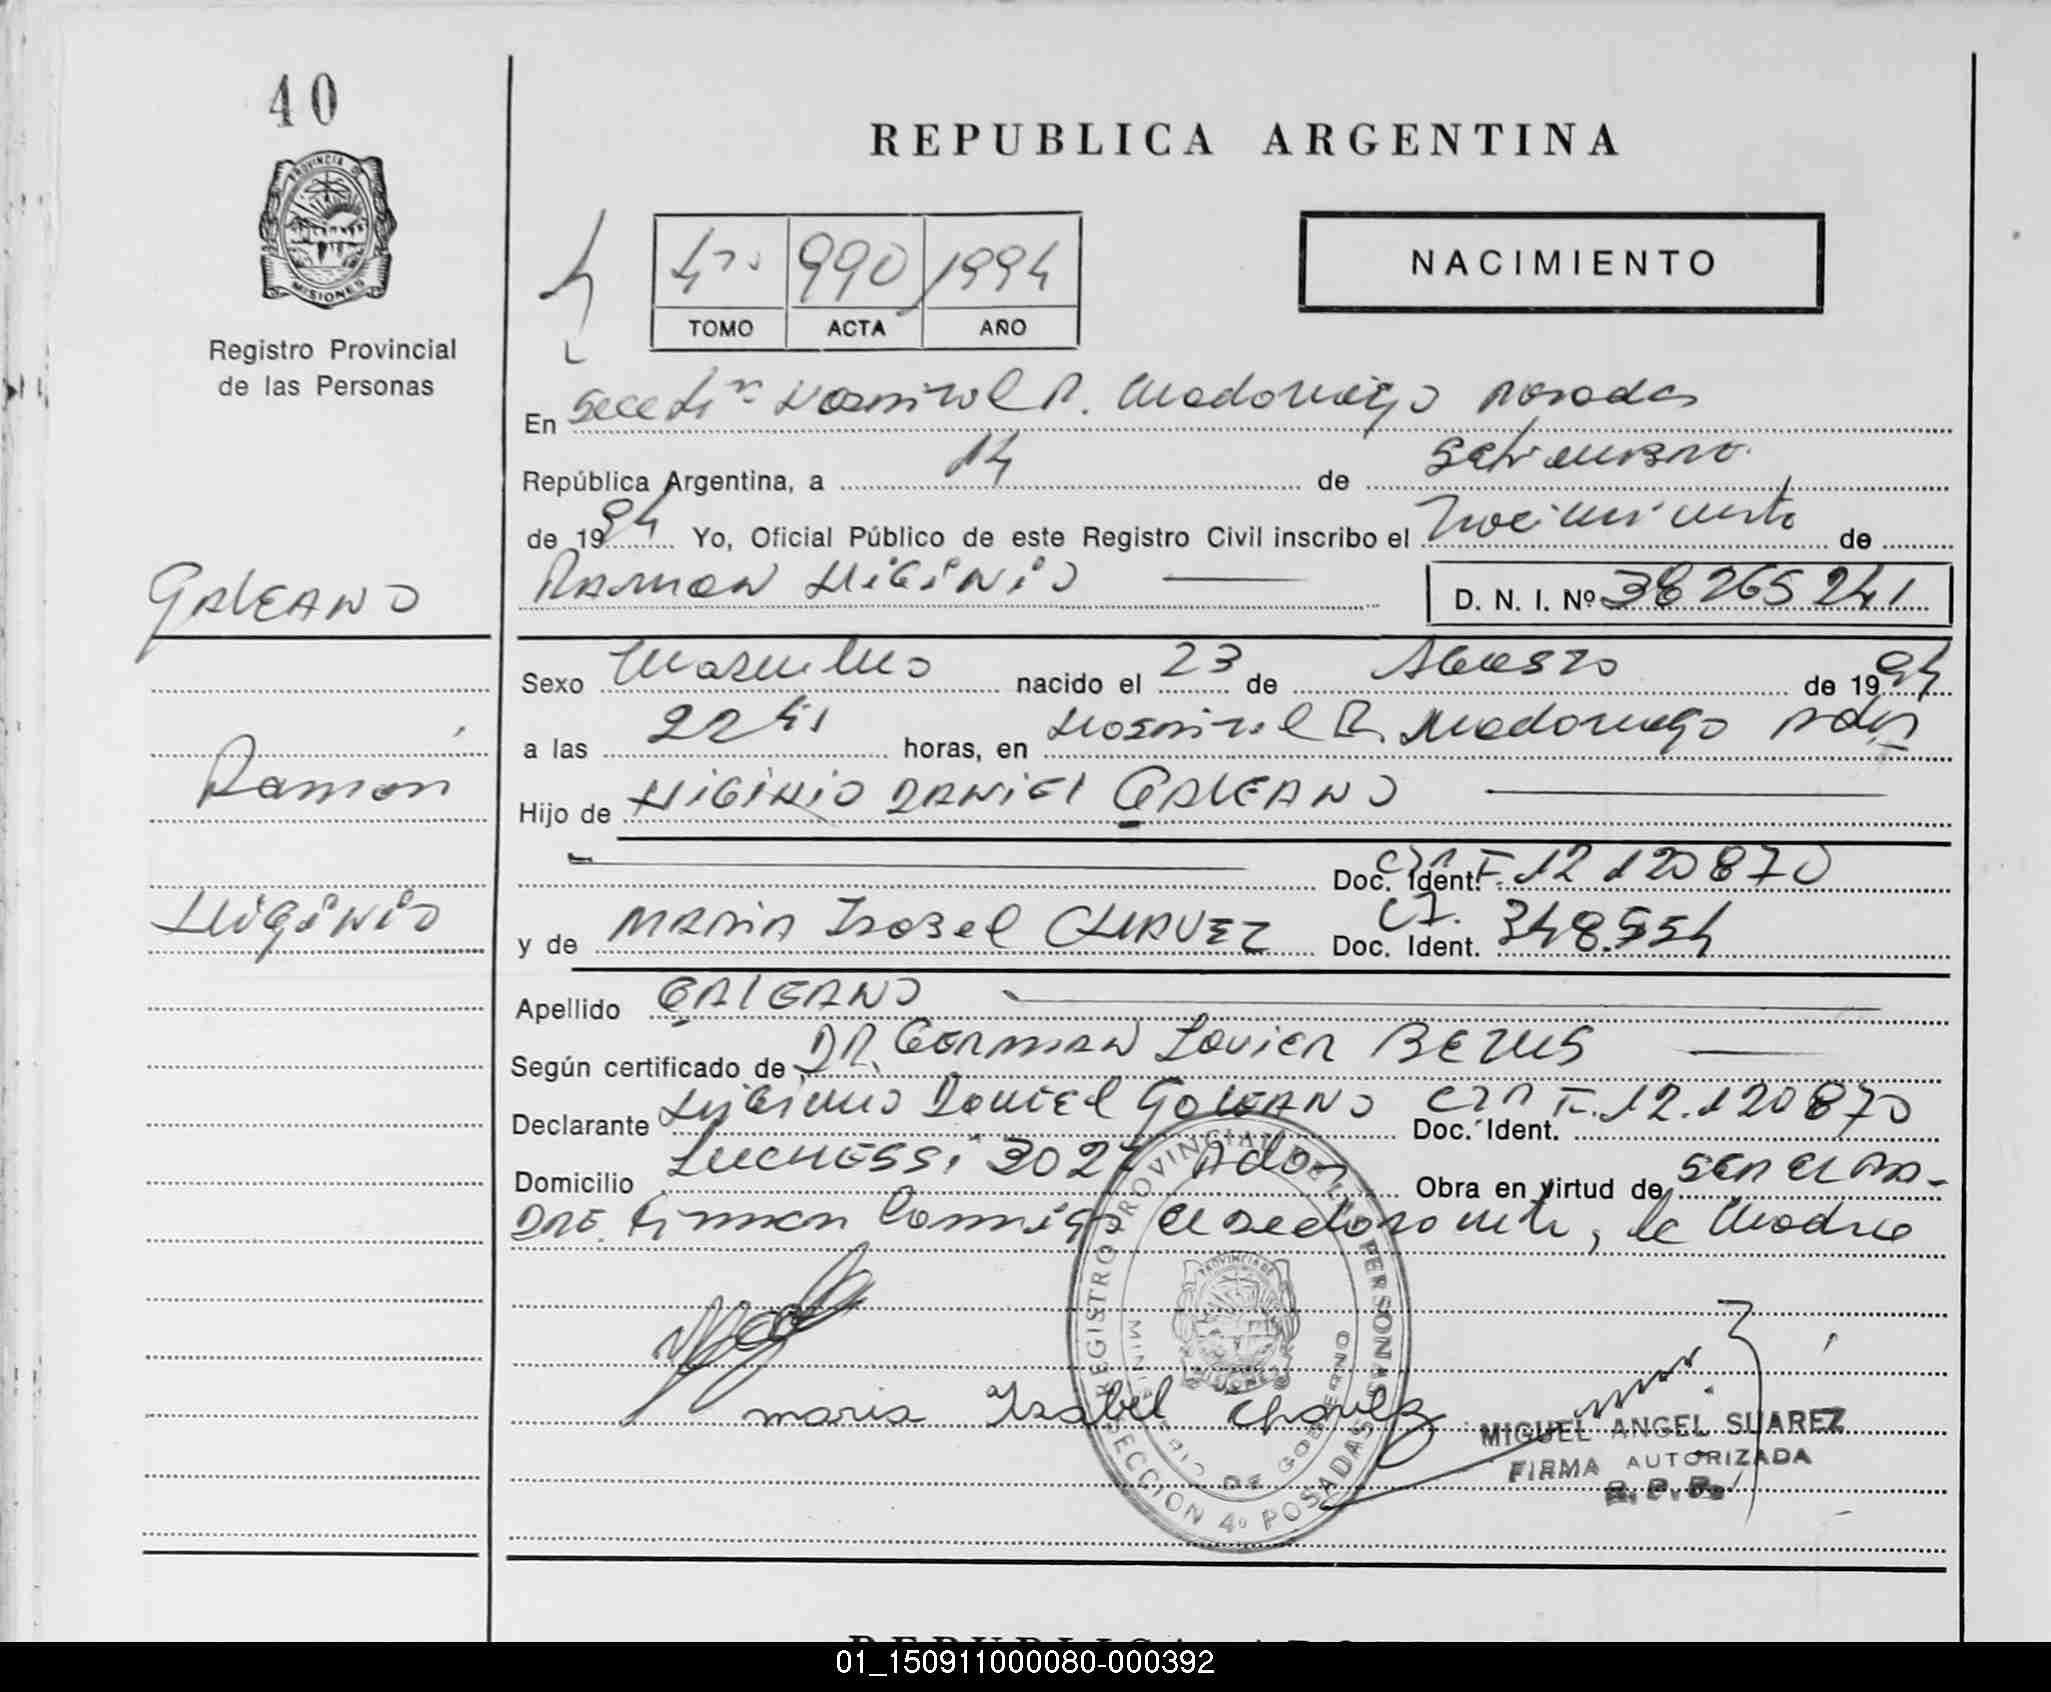 40
PROVINCIA DE
MISIONES
Registro Provincial
de las Personas
REPUBLICA ARGENTINA
4to 990 1994
TOMO ACTA AÑO
NACIMIENTO
En Secc 4ta Hospital R. Madariaga Posadas
República Argentina, a 14 de Setiembre
de 1994 Yo, Oficial Público de este Registro Civil inscribo el Nacimiento de
RAMON HIGINIO D. N. I. Nº 38265241
GALEANO
Ramón
HIGINIO
Sexo Masculino nacido el 23 de Agosto de 1994
a las 22 hs horas, en Hospital R. Madariaga Pdas
Hijo de HIGINIO DANIEL GALEANO
Doc. Ident. 12 120870
y de MARIA Isabel CHAVEZ Doc. Ident. CI. 348.554
Apellido GALEANO
Según certificado de DR. GERMAN Javier BEZUS
Declarante Higinio Daniel GALEANO Doc. Ident. 12.120870
Domicilio LUCHESSI 3027 Pdas Obra en virtud de SER EL PA-
DRE. Firman Conmigo el declarante, la Madre
Maria Isabel Chavez
REGISTRO PROVINCIAL DE LAS PERSONAS
MINISTERIO DE GOBIERNO
SECCION 4º POSADAS
MIGUEL ANGEL SUAREZ
FIRMA AUTORIZADA
R. P. P.
01_150911000080-000392